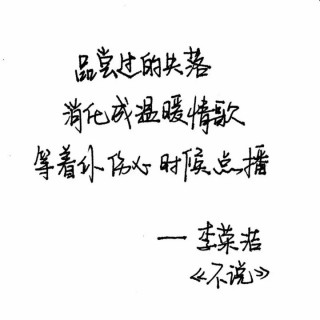 品尝过的失落
消化成温暖情歌
等着你伤心时候点播
— 李荣浩
《不说》